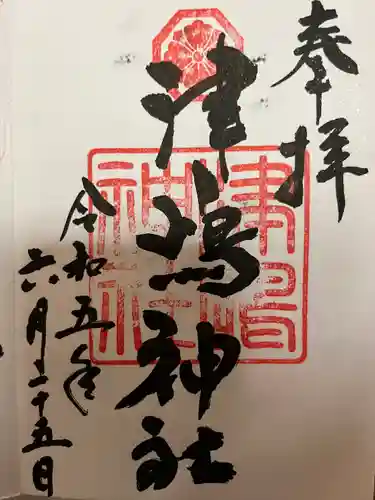 奉拝
津嶋神社
津島神社
令和五年
六月二十五日